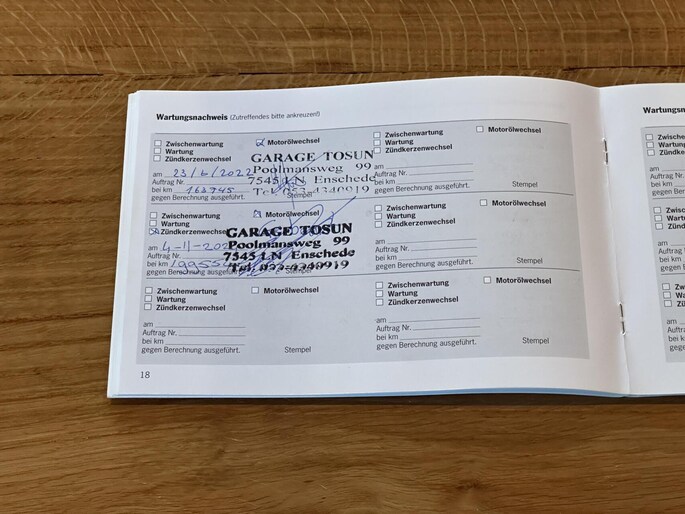 Wartungsnachweis (Zutreffendes bitte ankreuzen!)
Zwischenwartung Motorölwechsel
Wartung
Zündkerzenwechsel
GARAGE TOSUN
Poolmansweg 99
7545 LN Enschede
Tel. 053-4340919
am 23/6/2022
Auftrag Nr.
bei km 163745
gegen Berechnung ausgeführt. Stempel
Zwischenwartung Motorölwechsel
Wartung
Zündkerzenwechsel
am
Auftrag Nr.
bei km
gegen Berechnung ausgeführt. Stempel
Zwischenwartung Motorölwechsel
Wartung
Zündkerzenwechsel
GARAGE TOSUN
Poolmansweg 99
7545 LN Enschede
am 4-11-202
Auftrag Nr.
bei km
gegen Berechnung ausgeführt. Stempel
Zwischenwartung Motorölwechsel
Wartung
Zündkerzenwechsel
am
Auftrag Nr.
bei km
gegen Berechnung ausgeführt. Stempel
Zwischenwartung Motorölwechsel
Wartung
Zündkerzenwechsel
am
Auftrag Nr.
bei km
gegen Berechnung ausgeführt. Stempel
Zwischenwartung Motorölwechsel
Wartung
Zündkerzenwechsel
am
Auftrag Nr.
bei km
gegen Berechnung ausgeführt. Stempel
18
Wartungsn
Zwisc
Wartu
Zündk
am
Auftrag
bei km
gegen B
Zwi
War
Zün
am
Auftra
bei km
gegen
Zw
Wa
Zü
am
Auftr
bei k
gege